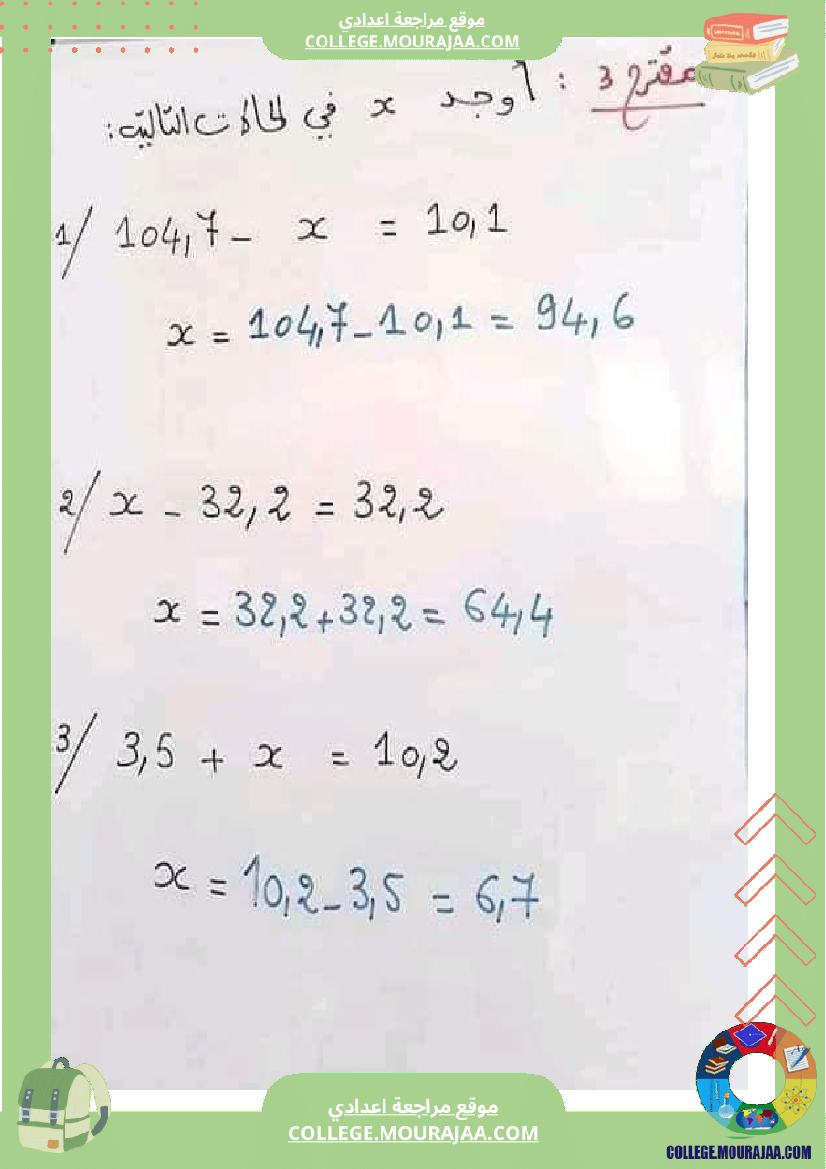 موقع مراجعة اعدادي
COLLEGE.MOURAJAA.COM
مقترح 3 : أوجد x في الحالات التالية:
1/ 104,7 - x = 10,1
x = 104,7 - 10,1 = 94,6
2/ x - 32,2 = 32,2
x = 32,2 + 32,2 = 64,4
3/ 3,5 + x = 10,2
x = 10,2 - 3,5 = 6,7
موقع مراجعة اعدادي
COLLEGE.MOURAJAA.COM
COLLEGE.MOURAJAA.COM